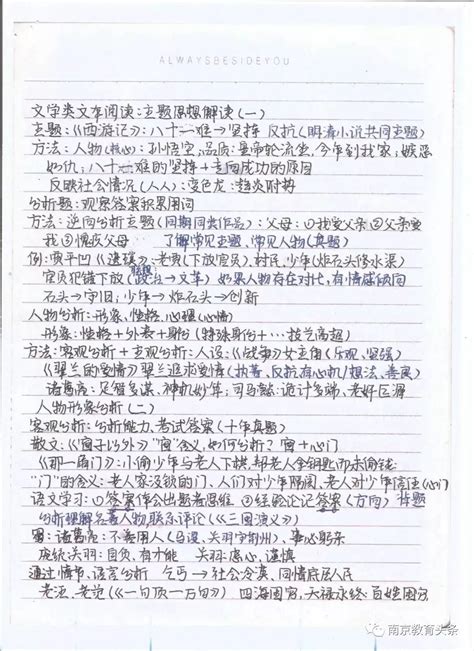 ALWAYSBESIDEYOU
文学类文本阅读:主题思想解读(一)
主题:《西游记》:八十一难→坚持 反抗(明清小说共同主题)
方法:人物(核心):孙悟空,品质:皇帝轮流坐,今年到我家;嫉恶
如仇;八十一难的坚持+走向成功的原因
反映社会情况(人人):变色龙:趋炎附势
分析题:观察答案积累用词
方法:逆向分析主题(同期同类作品):父母:①我爱父亲②父亲爱
我③愧疚父母 了解常见主题、常见人物(真题)
例:贾平凹《》:老黄(下放官员),村民,少年(炸石头修水渠)
官员犯错下放(政治→文革) 如果人物存在对比,有情感倾向
石头→守旧;少年→炸石头→创新
人物分析:形象、性格、心理(心情)
形象:性格+外表+身份(特殊身份+…技艺高超)
方法:客观分析+主观分析:人设:《战争》女主角(乐观、坚强)
《翠兰的爱情》翠兰追求爱情(执着、反抗有心机/想法、善良)
诸葛亮:足智多谋、神机妙算;司马懿:诡计多端、老奸巨滑
人物形象分析(二)
客观分析:分析能力、考试答案(十年真题)
散文:《窗子以外》“窗”含义,如何分析?窗+心门
《那一扇门》:小偷少年与老人下棋,帮老人拿钥匙而未偷钱
“门”的含义:老人家没锁的门,人们对少年隔阂,老人对少年信任(心门)
语文学习:①答案体会出题者思维 ②经验论记答案(方向) 做题
分析理解名著人物,联系评论(《三国演义》)
蜀:诸葛亮:不善用人(马谡、关羽守荆州),事必躬亲
庞统、关羽:自负、有才能 关羽:忠心、谨慎
通过情节、语言分析 乞丐→社会冷漠,同情底层人民
老汪、老范(《一句顶一万句》) 四海困穷,天禄永终:百姓困穷
南京教育头条